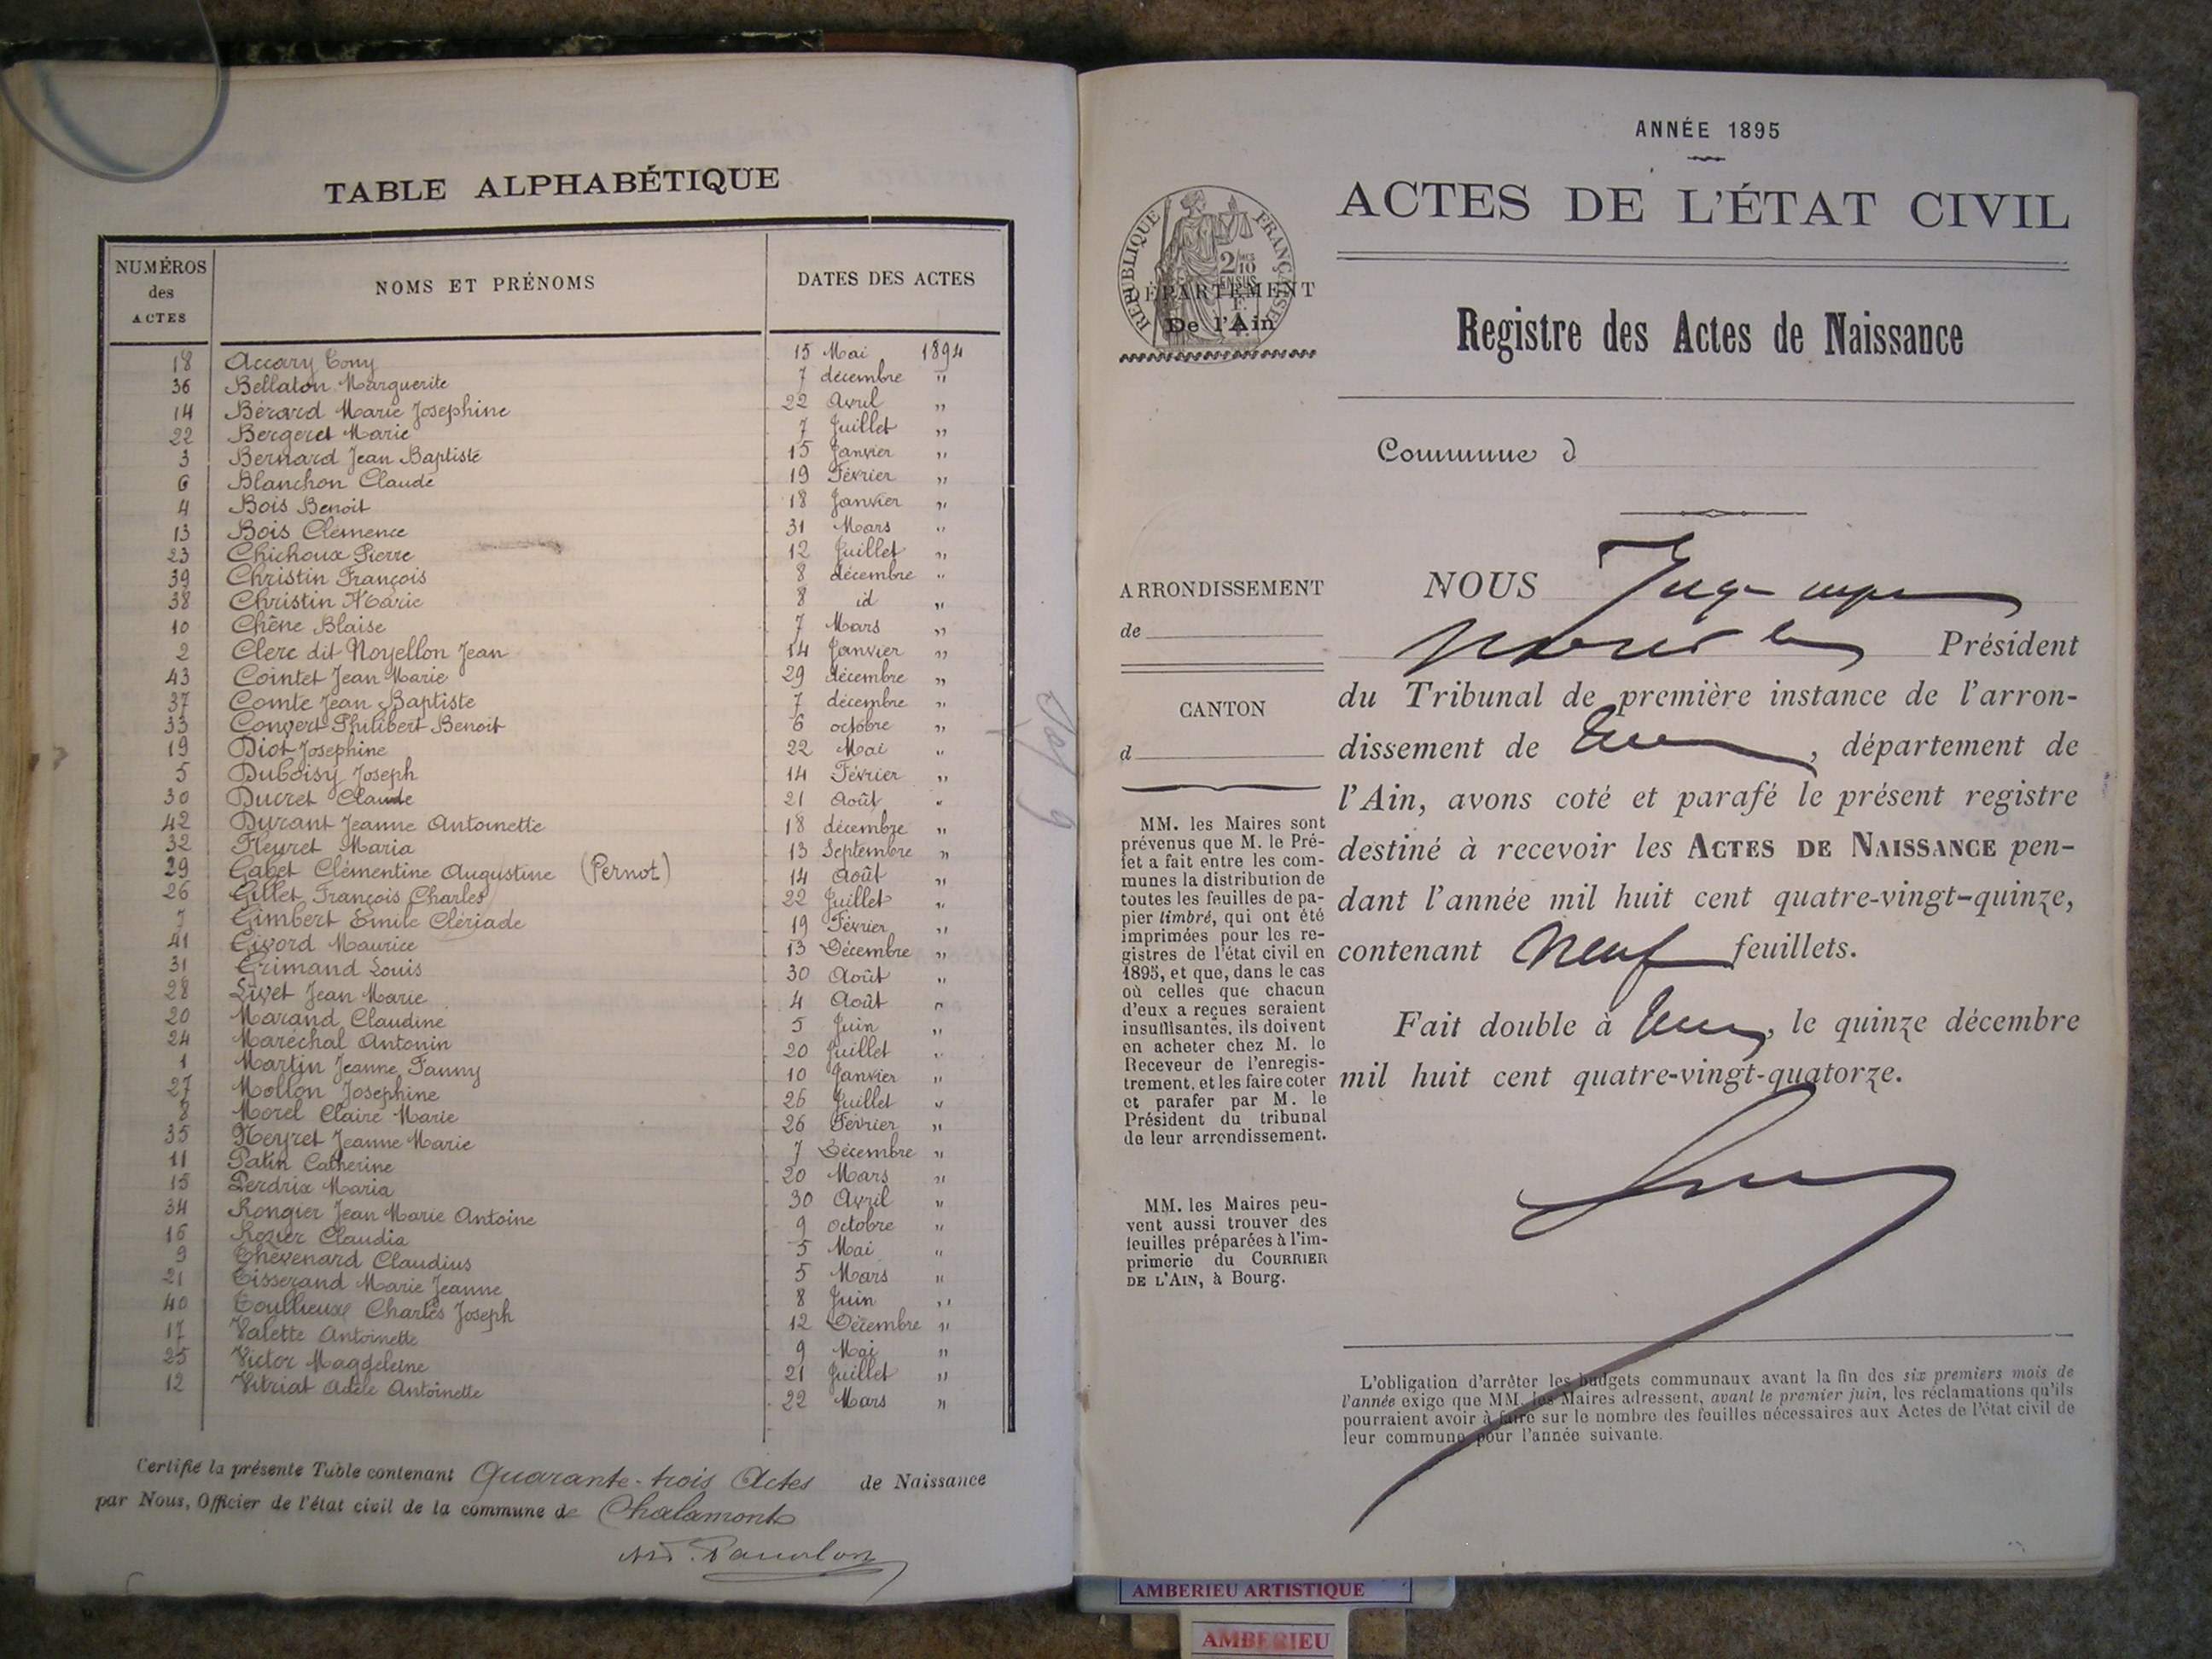 TABLE ALPHABÉTIQUE
NUMÉROS des ACTES NOMS ET PRÉNOMS DATES DES ACTES
18 Accary Tony 15 Mai 1894
36 Bellaton Marguerite 7 décembre "
14 Bérard Marie Josephine 22 Avril "
22 Bergeret Marie 7 Juillet "
3 Bernard Jean Baptiste 15 Janvier "
6 Blanchon Claude 19 Février "
4 Bois Benoit 18 Janvier "
13 Bois Clémence 31 Mars "
23 Chichoux Pierre 12 Juillet "
39 Christin François 8 décembre "
38 Christin Marie 8 id "
10 Chêne Blaise 7 Mars "
2 Clerc dit Noyellon Jean 14 Janvier "
43 Cointet Jean Marie 29 décembre "
37 Comte Jean Baptiste 7 décembre "
33 Convert Philibert Benoit 6 octobre "
19 Diot Josephine 22 Mai "
5 Duboisy Joseph 14 Février "
30 Ducret Claude 21 Août "
42 Durant Jeanne Antoinette 18 décembre "
32 Fleyret Maria 13 Septembre "
29 Gabet Clémentine Augustine (Pernot) 14 Août "
26 Gillet François Charles 22 Juillet "
7 Gimbert Emile Clériade 19 Février "
41 Givord Maurice 13 Décembre "
31 Grimand Louis 30 Août "
28 Livet Jean Marie 4 Août "
20 Marand Claudine 5 Juin "
24 Maréchal Antonin 20 Juillet "
1 Martin Jeanne Fanny 10 Janvier "
27 Mollon Josephine 26 Juillet "
8 Morel Claire Marie 26 Février "
35 Neyret Jeanne Marie 7 Décembre "
11 Patin Catherine 20 Mars "
15 Perdrix Maria 30 Avril "
34 Rongier Jean Marie Antoine 9 octobre "
16 Rozier Claudia 5 Mai "
9 Thévenard Claudius 5 Mars "
21 Tisserand Marie Jeanne 8 Juin "
40 Toullieux Charles Joseph 12 Décembre "
17 Valette Antoinette 9 Mai "
25 Victor Magdeleine 21 Juillet "
12 Vitriat Adèle Antoinette 22 Mars "
Certifié la présente Table contenant Quarante-trois Actes de Naissance
par Nous, Officier de l'état civil de la commune de Chalamont
ANNÉE 1895
ACTES DE L'ÉTAT CIVIL
RÉPUBLIQUE FRANÇAISE
2/10 EN SUS
DÉPARTEMENT
De l'Ain
Registre des Actes de Naissance
Commune d
ARRONDISSEMENT
de
CANTON
d
MM. les Maires sont
prévenus que M. le Pré-
fet a fait entre les com-
munes la distribution de
toutes les feuilles de pa-
pier timbré, qui ont été
imprimées pour les re-
gistres de l'état civil en
1895, et que, dans le cas
où celles que chacun
d'eux a reçues seraient
insuffisantes, ils doivent
en acheter chez M. le
Receveur de l'enregis-
trement, et les faire coter
et parafer par M. le
Président du tribunal
de leur arrondissement.
MM. les Maires peu-
vent aussi trouver des
feuilles préparées à l'im-
primerie du COURRIER
DE L'AIN, à Bourg.
NOUS Juge
Président
du Tribunal de première instance de l'arron-
dissement de , département de
l'Ain, avons coté et parafé le présent registre
destiné à recevoir les ACTES DE NAISSANCE pen-
dant l'année mil huit cent quatre-vingt-quinze,
contenant Neuf feuillets.
Fait double à , le quinze décembre
mil huit cent quatre-vingt-quatorze.
L'obligation d'arrêter les budgets communaux avant la fin des six premiers mois de
l'année exige que MM. les Maires adressent, avant le premier juin, les réclamations qu'ils
pourraient avoir à faire sur le nombre des feuilles nécessaires aux Actes de l'état civil de
leur commune pour l'année suivante.
AMBERIEU ARTISTIQUE
AMBERIEU